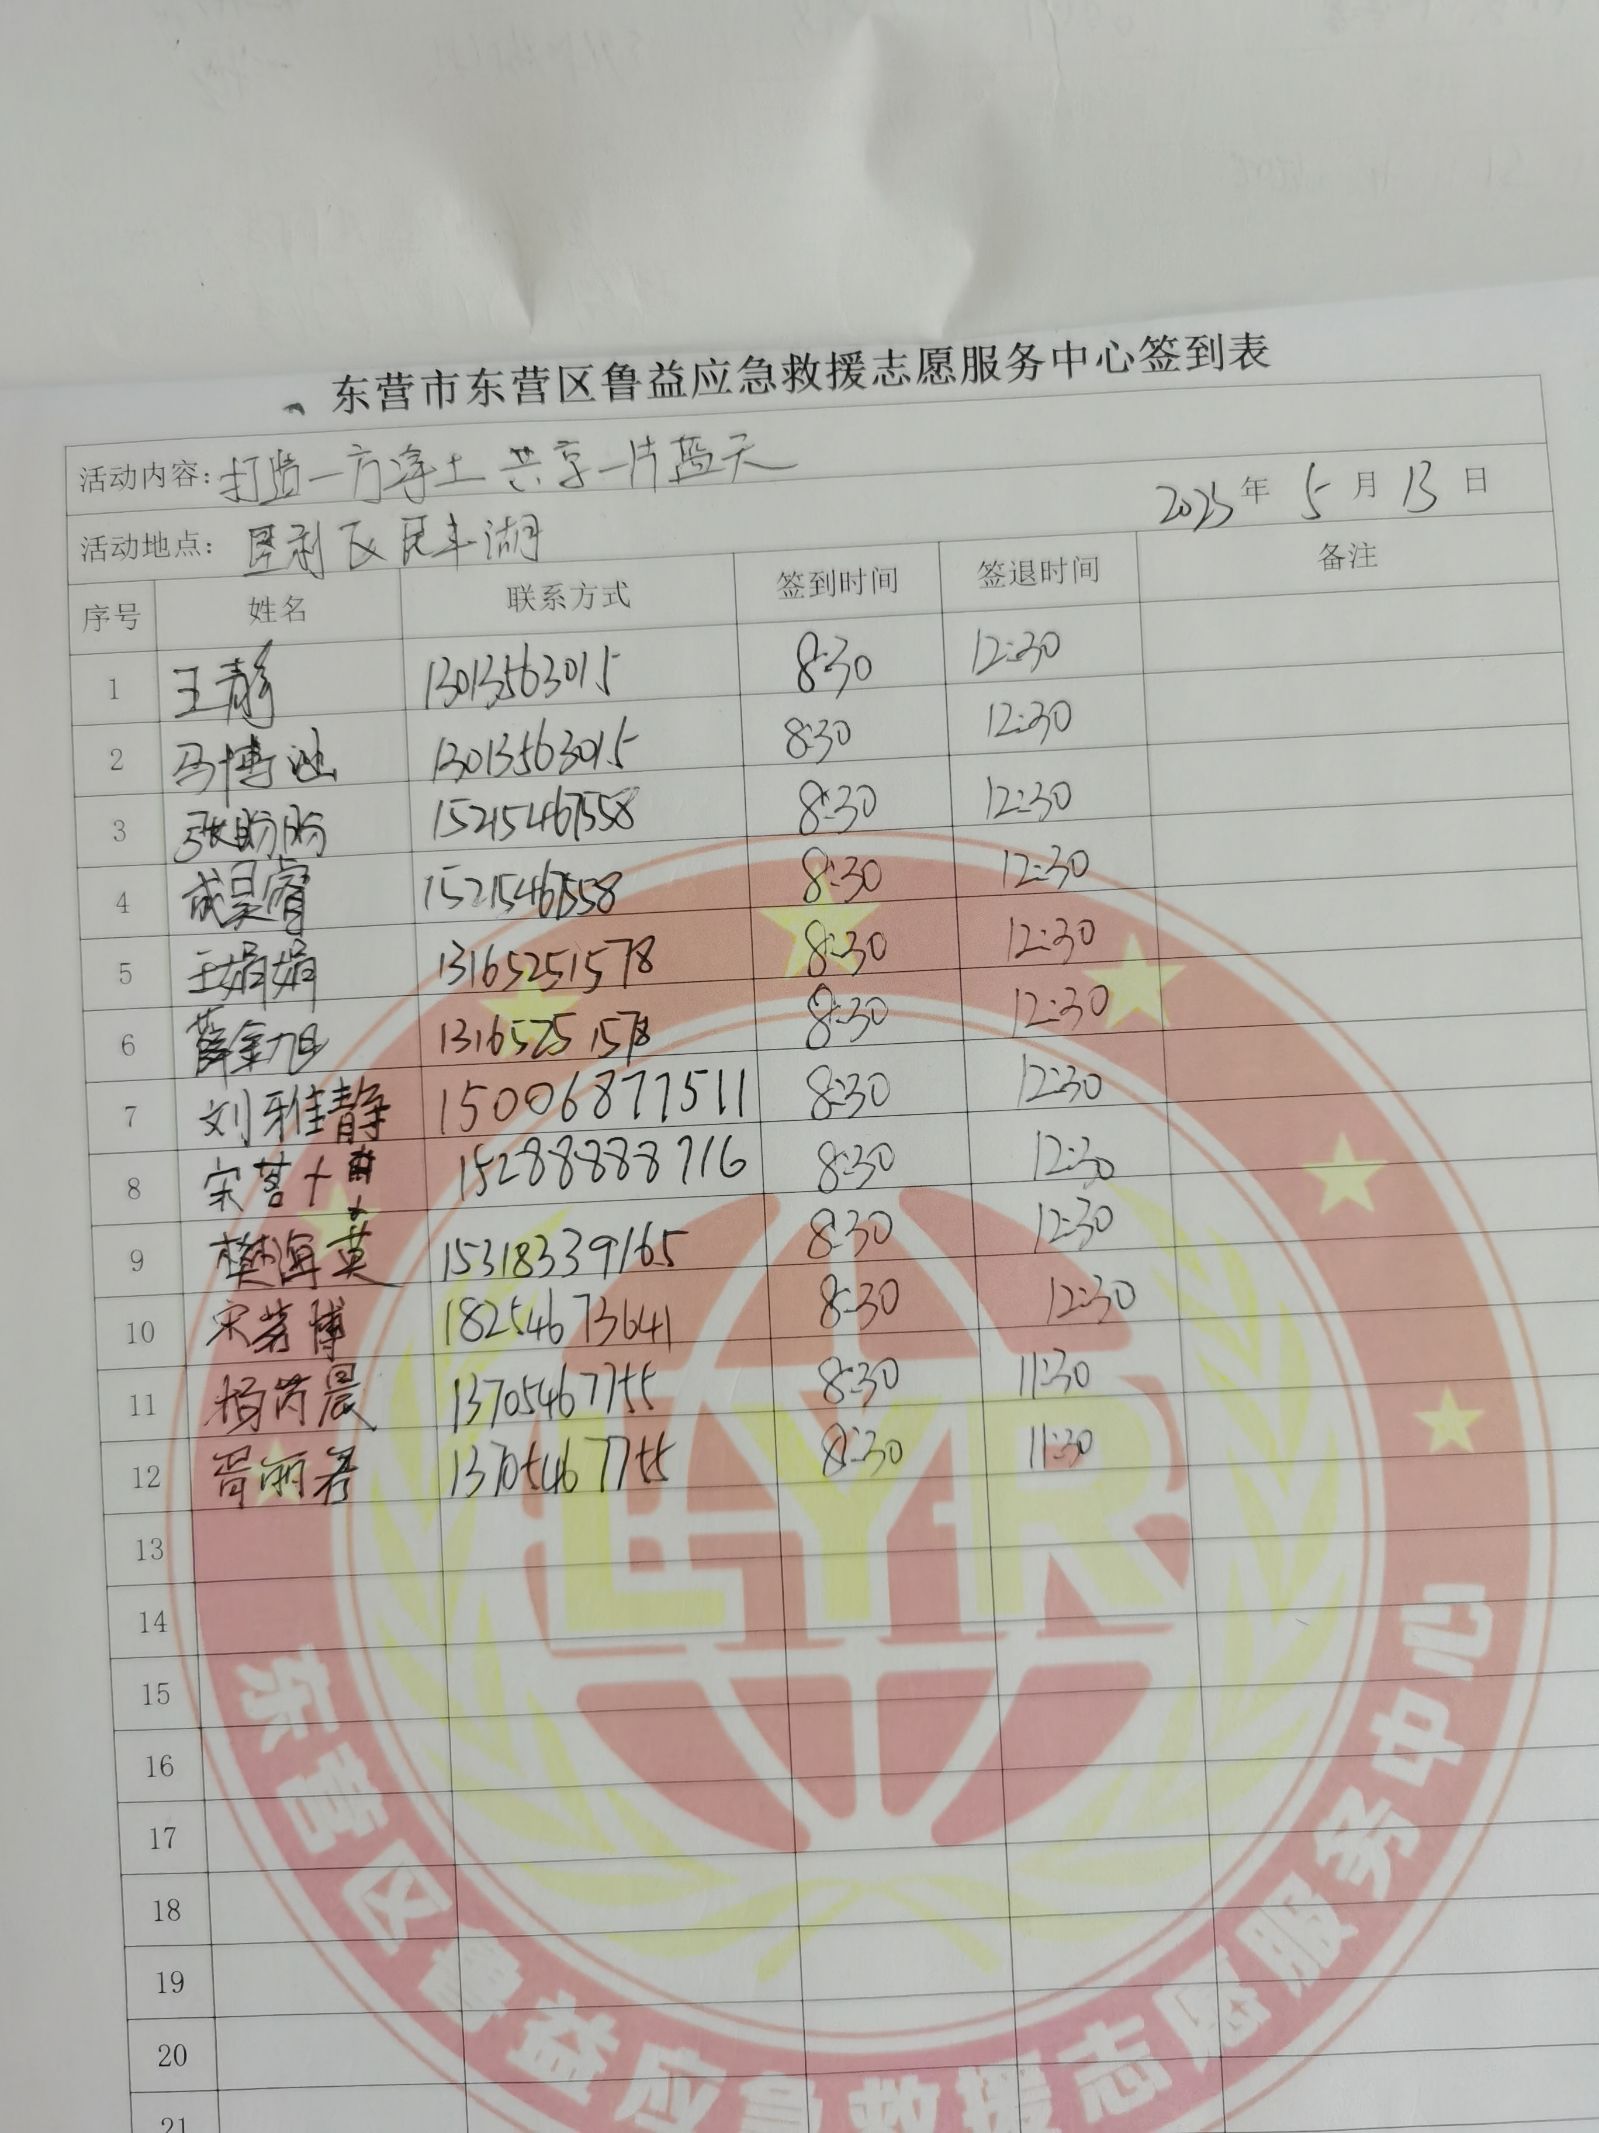 东营市东营区鲁益应急救援志愿服务中心签到表
活动内容: 打造一方净土 共享一片蓝天
活动地点: 垦利区民丰湖 2023年 5月 13日
序号 姓名 联系方式 签到时间 签退时间 备注
1 王静 13013563015 8:30 12:30
2 马博 13013563015 8:30 12:30
3 张盼盼 15215467558 8:30 12:30
4 成昊睿 15215467558 8:30 12:30
5 王娟娟 13165251578 8:30 12:30
6 薛金旭 13165251578 8:30 12:30
7 刘雅静 15006877511 8:30 12:30
8 宋茗 15288888716 8:30 12:30
9 樊海英 15318339165 8:30 12:30
10 宋茗博 18254673641 8:30 12:30
11 杨芮晨 13705467755 8:30 11:30
12 胥丽君 13705467755 8:30 11:30
13
14
15
16
17
18
19
20
21
LYR
东营区鲁益应急救援志愿服务中心